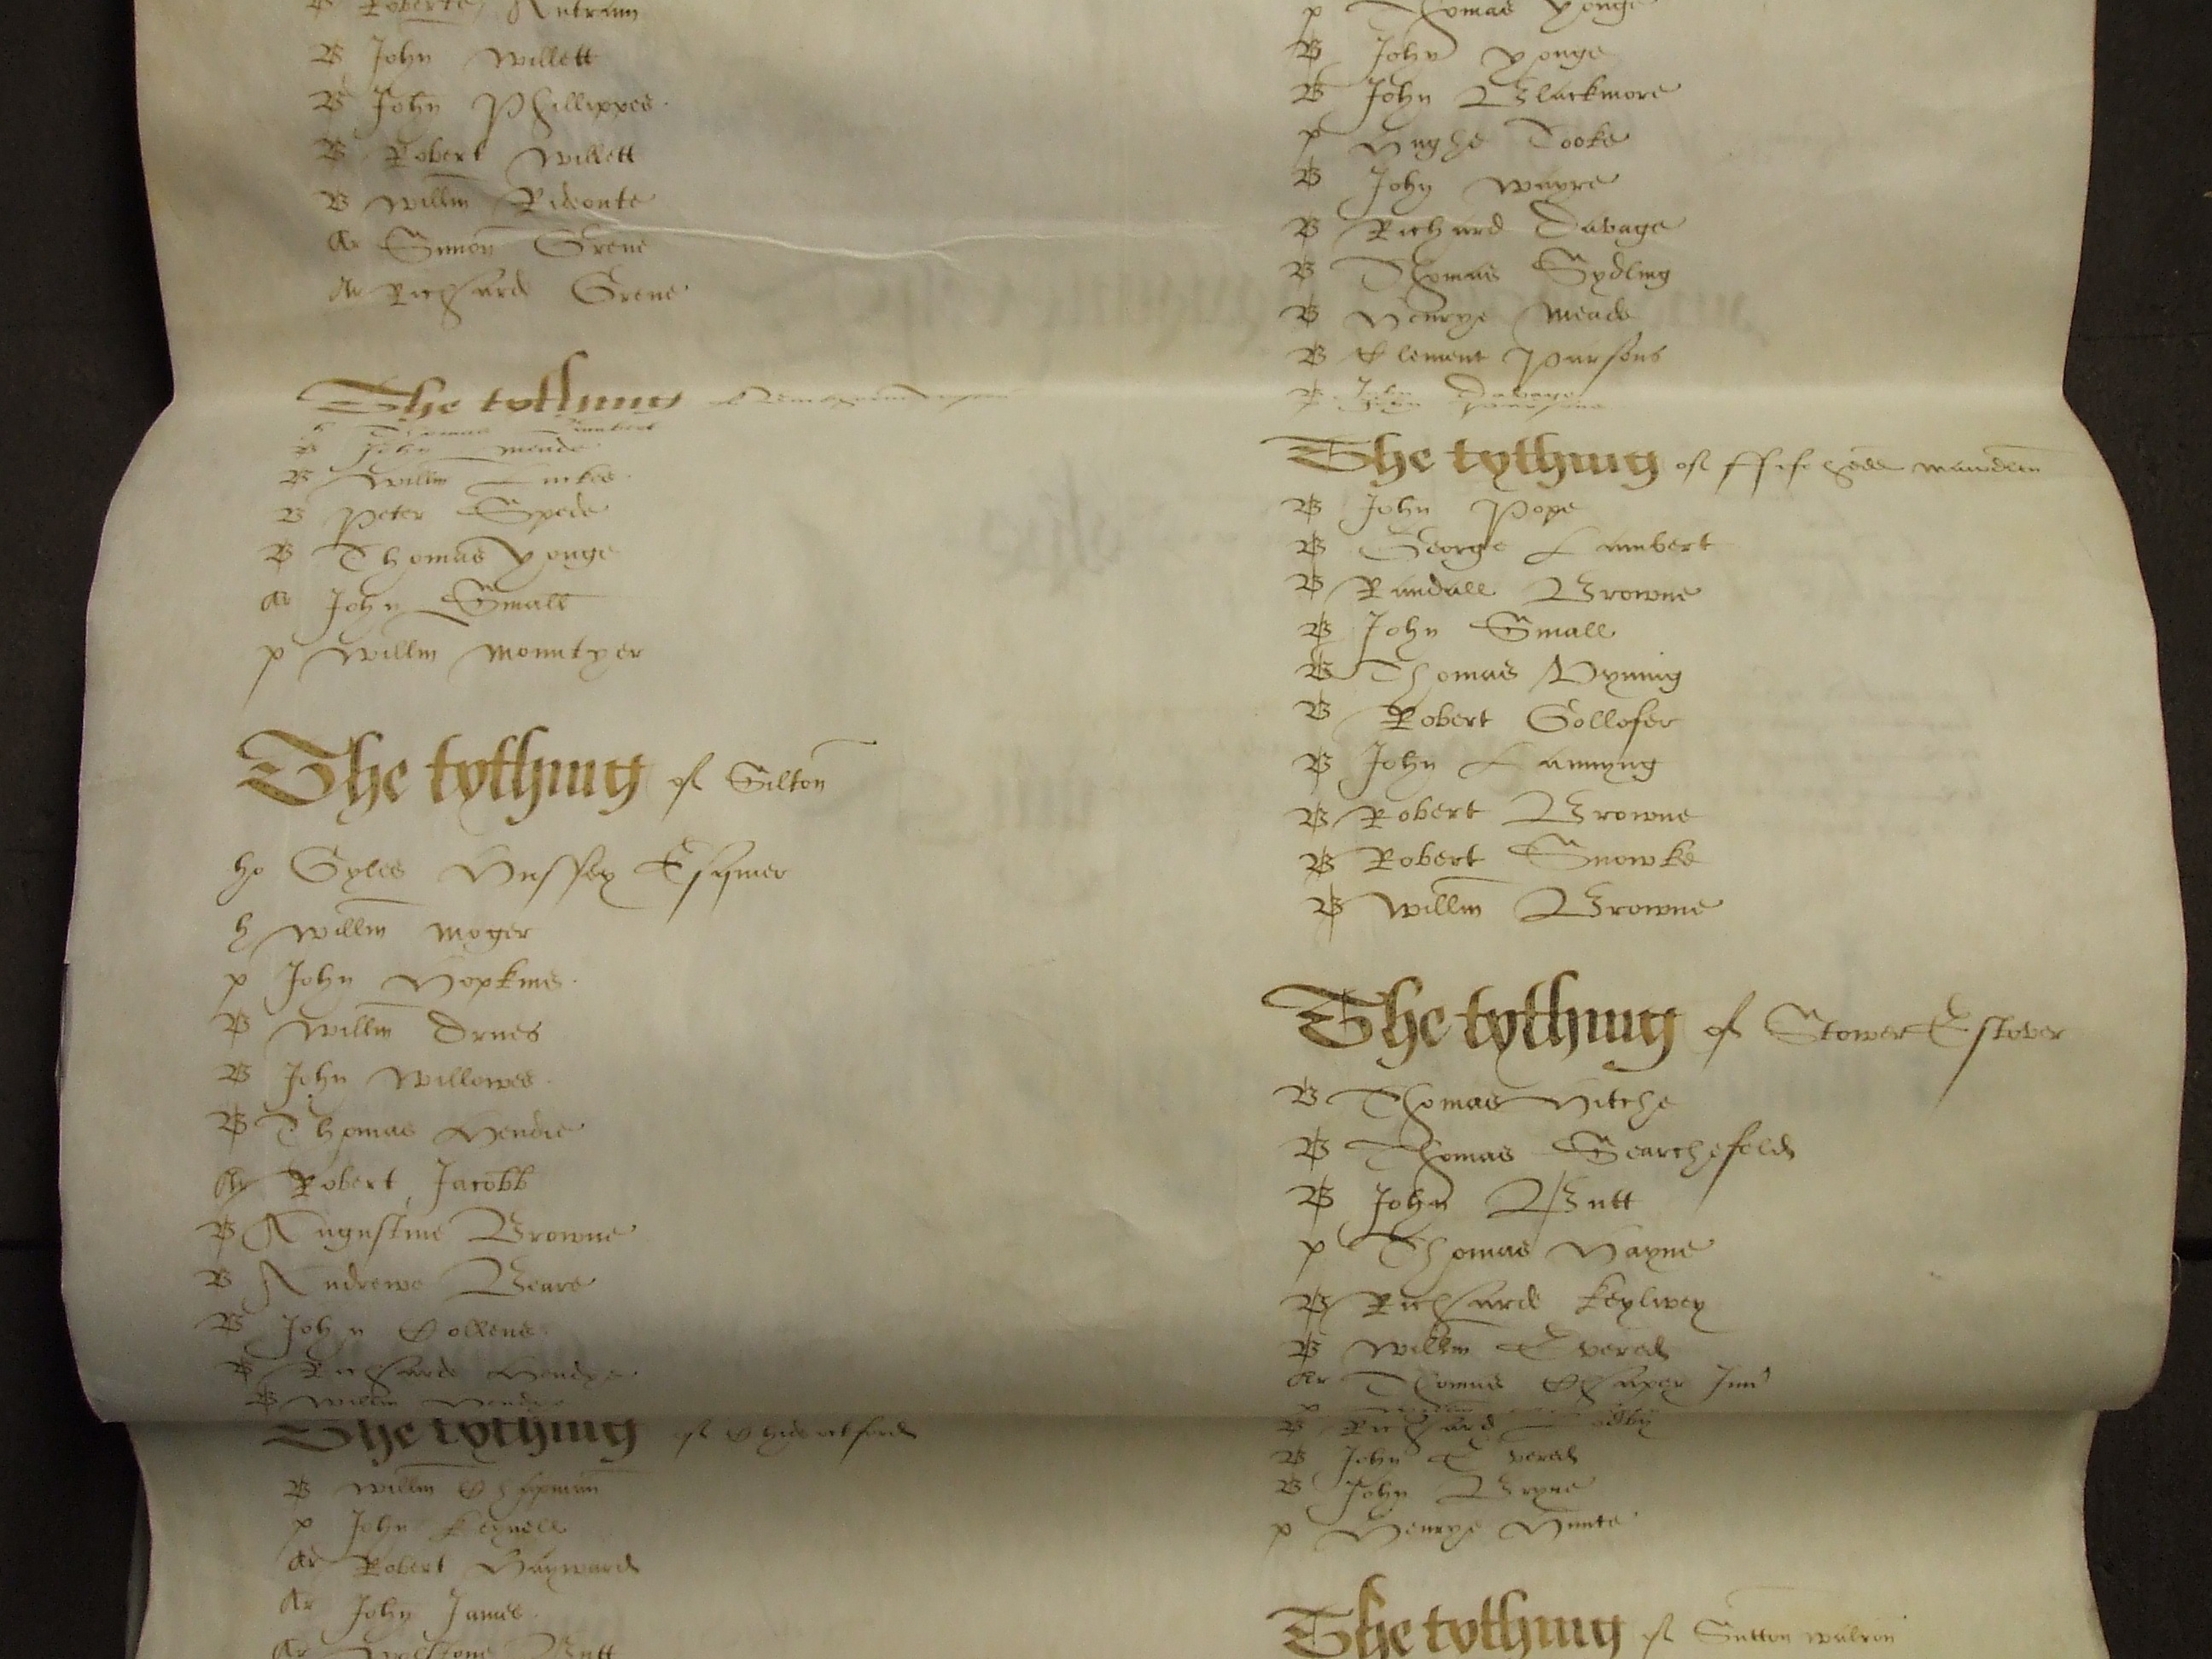 Roberte Antram
B John Willett
B John Phillippes
B Robert Willett
B Willm Rideoute
Ar Simon Grene
Ar Richard Grene
The tythinng
B John Meade
B Willm
B Peter Spede
B Thomas Yonge
Ar John Small
p Willm Mounntyer
The tythinng of Gilton
ho Gyles Hussey Esquier
h Willm Moger
p John Hopkins
B Willm Ornes
B John Willowes
B Thomas Hendie
Ar Robert Jacobb
B Augustine Browne
B Andrewe Beare
B John Collens
B Richarde Hendye
B Willm Hendye
The tythinng of
B Willm Chepman
p John Keynell
Ar Robert Hayward
Ar John James
Ar Butt
p Thomas Yonge
B John Yonge
B John Blackmore
p Hughe Tooke
B John Wayre
B Richard Davage
B Thomas Sydling
B Henrye Meade
B Clement Parsons
B John Davage
The tything of
B John Pope
B George Lambert
B Randall Browne
B John Small
B Thomas Vyning
B Robert Gollofer
B John Lannyng
B Robert Browne
B Robert Snowke
B Willm Browne
The tything of Stower Estover
B Thomas Hitche
B Thomas Searchefeld
B John Butt
p Thomas Hayne
B Richarde Keylwey
B Willm Evered
Ar Thomas Chaper Jun
B Richard
B John Evered
B John Bryne
p Henrye Hunte
The tything of Sutton Walron